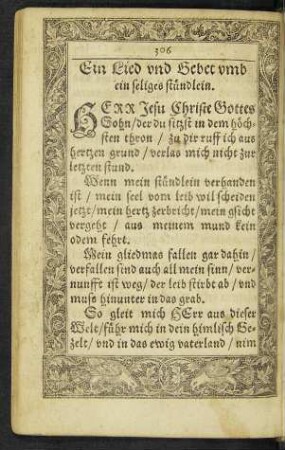 306
Ein Lied vnd Gebet vmb
ein seliges ständlein.
HERR Jesu Christe Gottes
Sohn / der du sitzst in dem höch-
sten thron / zu dir ruff ich aus
hertzen grund / verlas mich nicht zur
letzten stund.
Wenn mein stündlein verhanden
ist / mein seel vom leib wil scheiden
jetzt / mein hertz zerbricht / mein gsicht
vergeht / aus meinem mund kein
odem fehrt.
Mein gliedmas fallen gar dahin /
verfallen sind auch all mein sinn / ver-
nunfft ist weg / der leib stirbt ab / vnd
mus hinunter in das grab.
So gleit mich HErr aus dieser
Welt / führ mich in dein himlisch Ge-
zelt / vnd in das ewig vaterland / nim